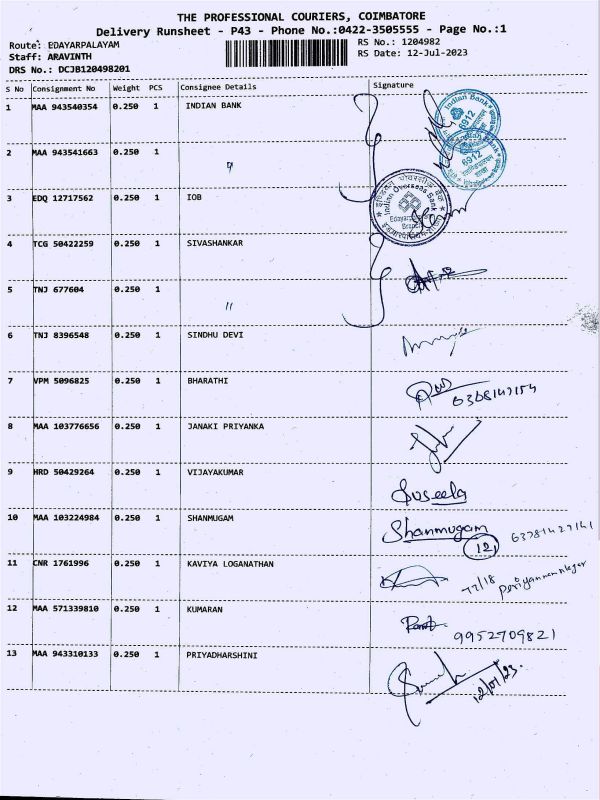 THE PROFESSIONAL COURIERS, COIMBATORE
Delivery Runsheet - P43 - Phone No.:0422-3505555 - Page No.:1
Route: EDAYARPALAYAM RS No.: 1204982
Staff: ARAVINTH RS Date: 12-Jul-2023
DRS No.: DCJB120498201
S No Consignment No Weight PCS Consignee Details Signature
1 MAA 943540354 0.250 1 INDIAN BANK
Indian Bank
6912
2 MAA 943541663 0.250 1 "
Indian Bank
6912
3 EDQ 12717562 0.250 1 IOB
Indian Overseas Bank
4 TCG 50422259 0.250 1 SIVASHANKAR
5 TNJ 677604 0.250 1 "
6 TNJ 8396548 0.250 1 SINDHU DEVI
7 VPM 5096825 0.250 1 BHARATHI
8 MAA 103776656 0.250 1 JANAKI PRIYANKA
9 HRD 50429264 0.250 1 VIJAYAKUMAR Suseela
10 MAA 103224984 0.250 1 SHANMUGAM Shanmugam
12
11 CNR 1761996 0.250 1 KAVIYA LOGANATHAN 77/18
12 MAA 571339810 0.250 1 KUMARAN
9952709821
13 MAA 943310133 0.250 1 PRIYADHARSHINI